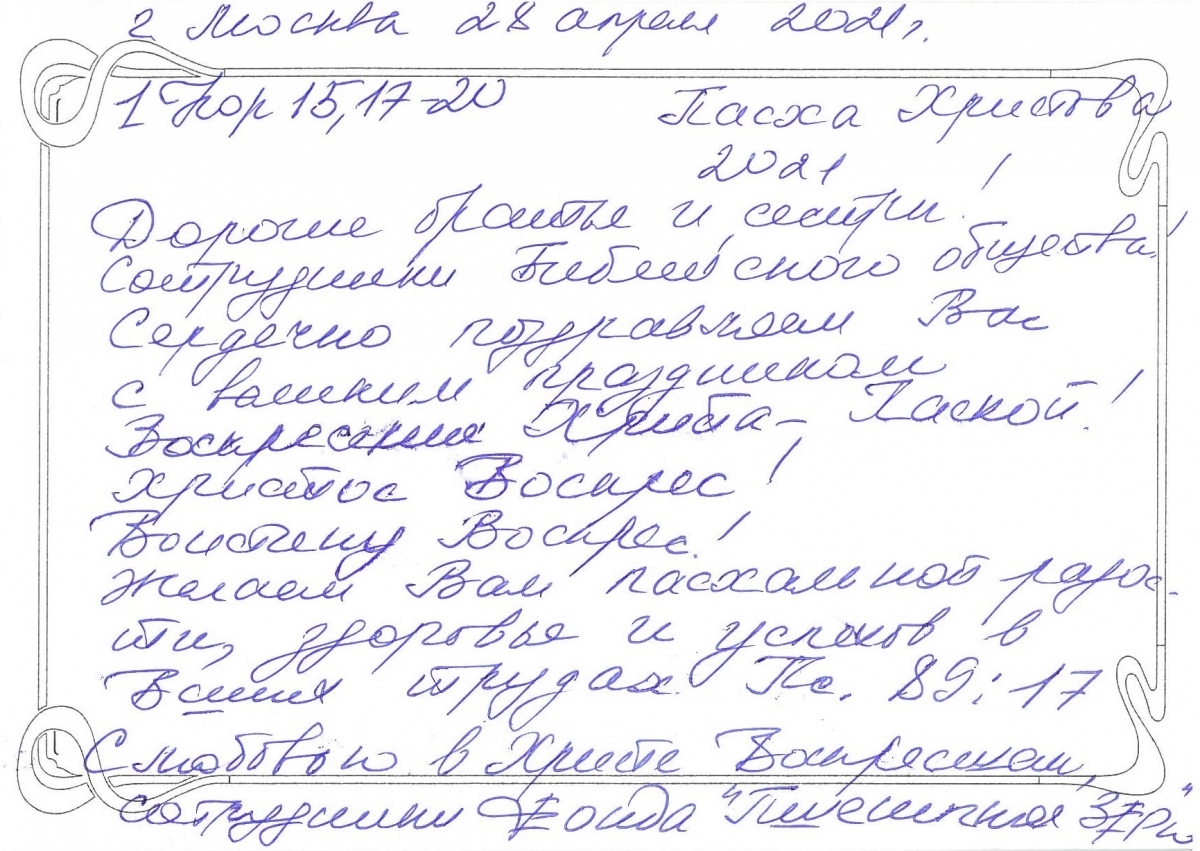 г. Москва 28 апреля 2021 г.
1 Кор 15,17-20 Пасха Христова
2021
Дорогие братья и сестры!
Сотрудники Библейского общества!
Сердечно поздравляем Вас
с великим праздником
Воскресения Христа – Пасхой!
Христос Воскрес!
Воистину Воскрес!
Желаем Вам пасхальной радос-
ти, здоровья и успехов в
Ваших трудах Пс. 89:17
С любовью в Христе Воскресшем,
сотрудники Фонда "Пшеничное Зерно"